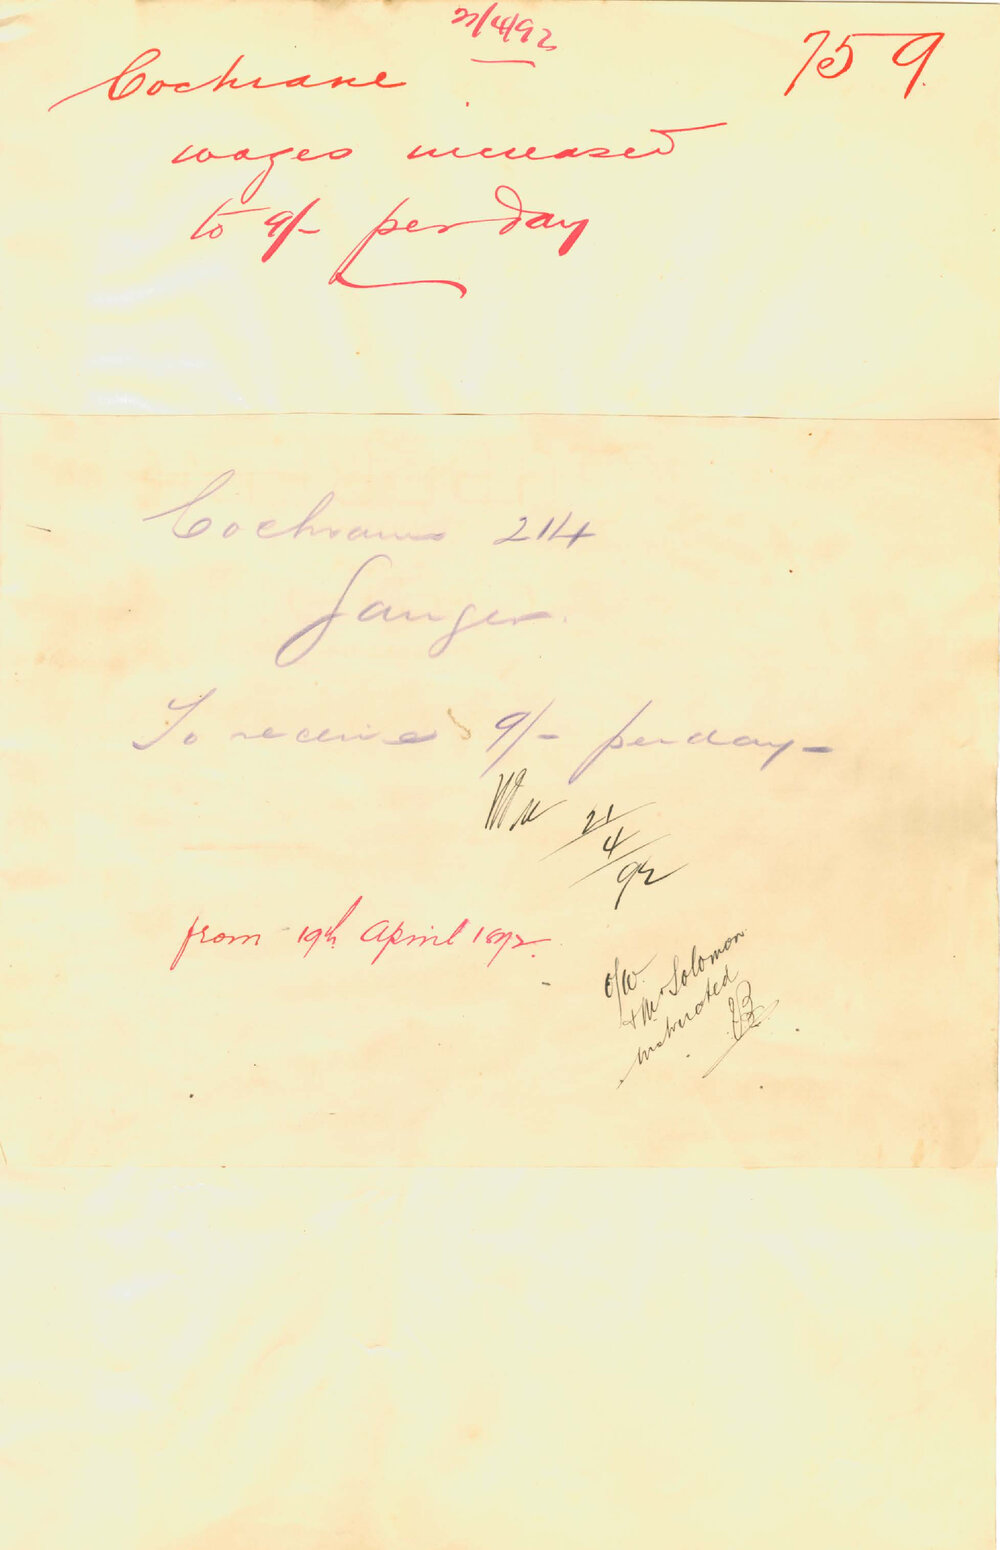 22/4/92
759.
Cochrane
wages increased
to 9/- per day
Cochrane 214
Ganger.
To receive 9/- per day -
21/4/92
from 19th April 1892.
o/w.
+ Mr Solomon
instructed